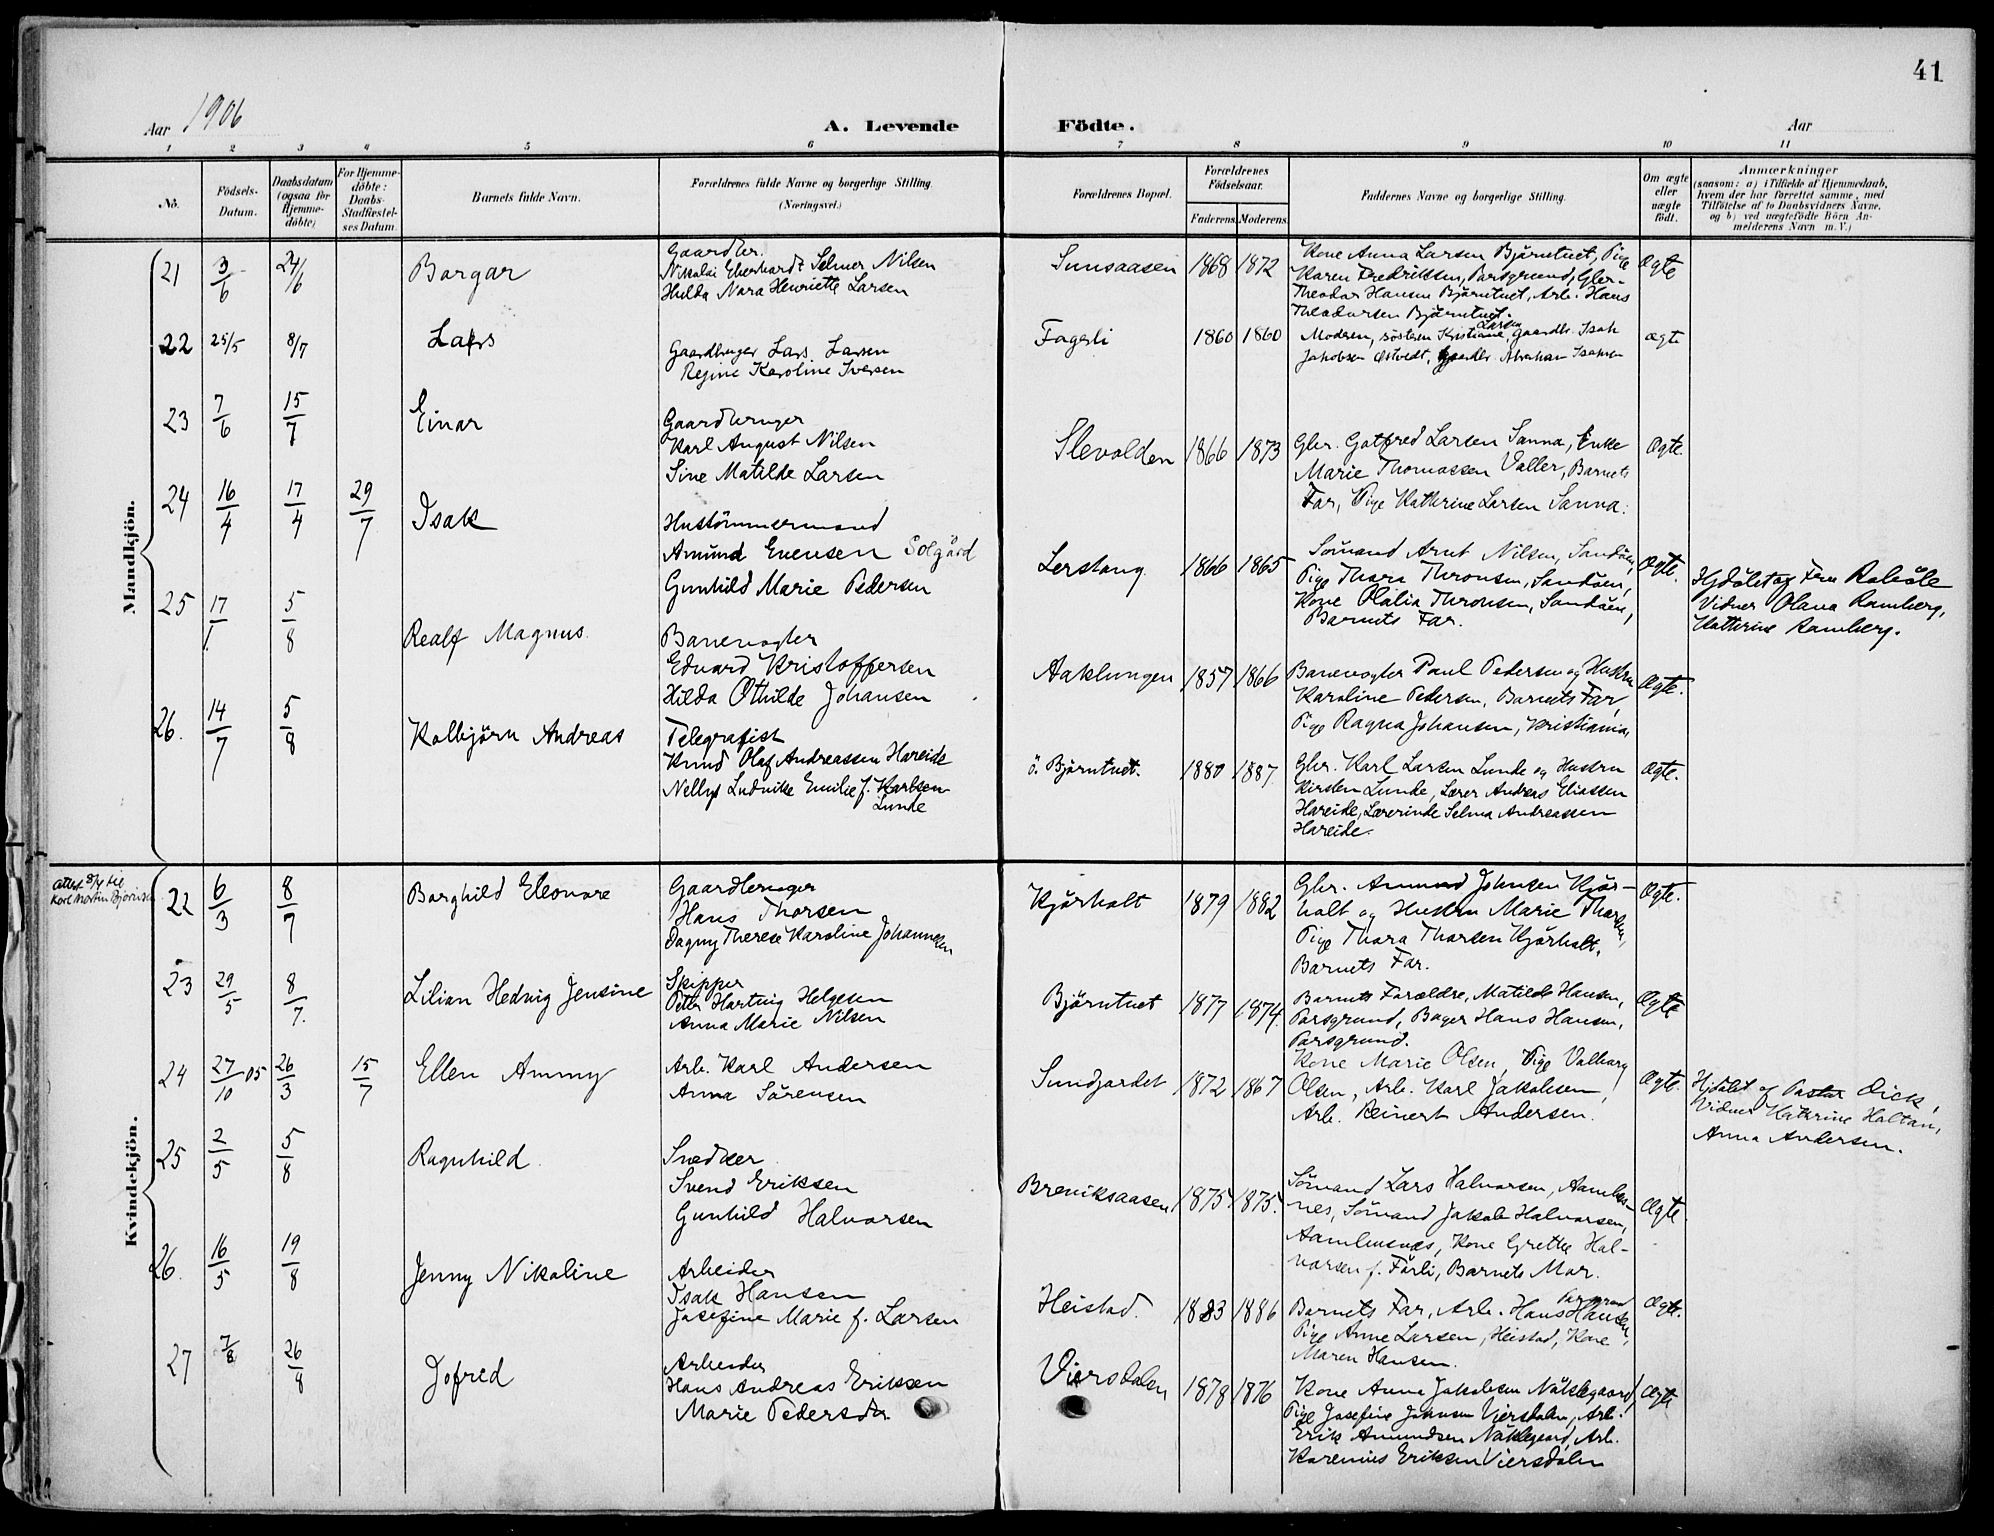 41
Aar 1906
A. Levende Födte.
Aar
1 2 3 4 5 6 7 8 9 10 11
No.
Födsels-Datum.
Daabsdatum (ogsaa for Hjemme-döbte)
For Hjemme-döbte: Daabs-Stadfæstel-ses Datum.
Barnets fulde Navn.
Forældrenes fulde Navne og borgerlige Stilling. (Næringsvei.)
Forældrenes Bopæl.
Forældrenes Födselsaar.
Faderens. Moderens.
Faddernes Navne og borgerlige Stilling.
Om ægte eller uægte födt.
Anmærkninger
(saasom: a) i Tilfælde af Hjemmedaab,
hvem der har forrettet samme, med
Tilföielse af to Daabsvidners Navne,
og b) ved uægtefödte Börn An-
melderens Navn m. V.)
Mandkjön.
21 3/6 24/6 Borgar
Gaardbr.
Nikolai Eberhardt Selmer Nilsen
Hulda Nora Henriette Larsen
Sunsaasen 1868 1872
Kone Anna Larsen Björntvet, Pige
Karen Fredriksen, Porsgrund, Gbr.
Theodor Hansen Björntvet, Arb. Hans
Theodorsen Björntvet.
Ægte
22 25/5 8/7 Lars
Gaardbruger Lars Larsen
Regine Karoline Iversen
Fagerli 1860 1860
Moderen, søsteren Kristiane Larsen, Gaardbr. Isak
Jakobsen Østvedt, Gaardbr. Abraham Isaksen
ægte
23 7/6 15/7 Einar
Gaardbruger
Karl August Nilsen
Sine Matilde Larsen
Slevolden 1866 1873
Gbr. Gotfred Larsen Sanna, Enke
Marie Thomassen Valler, Barnets
Far, Pige Kathrine Larsen Sanna.
Ægte.
24 16/4 17/4 29/7 Isak
Hustömmermand
Amund Evensen Solgård
Gunhild Marie Pedersen
Lerstang. 1866 1865
Sömand Arnt Nilsen, Sandöen,
Pige Thora Thronsen, Sandöen,
Kone Olalia Thronsen, Sandöen,
Barnets Far.
Ægte.
Hjdöbt af Fru
Vidner Olava Ramberg,
Kathrine Ramberg.
25 17/1 5/8 Realf Magnus.
Banevogter
Edvard Kristoffersen
Hilda Othilde Johansen
Aaklungen 1857 1866
Banevogter Paul Pedersen og Hustru
Karoline Pedersen, Barnets Far,
Pige Ragna Johansen, Kristiania.
Ægte.
26. 14/7 5/8 Kolbjörn Andreas
Telegrafist
Knud Olaf Andreassen Hareide
Nellys Ludvikke Emilie f. Karlsen
Lunde
ö. Björntvet. 1880 1887.
Gbr. Karl Larsen Lunde og Hustru
Kirsten Lunde, Lærer Andreas Eliassen
Hareide, Lærerinde Selma Andreassen
Hareide.
Ægte.
Kvindekjön.
Attest 8/4 til
Karl Martin Björnsen
22 6/3 8/7 Borghild Eleonore
Gaardbruger
Hans Thorsen
Dagny Therese Karoline Johannessen
Kjörholt 1879 1882
Gbr. Amund Johnsen Kjör-
holt og Hustru Marie Thorsen,
Pige Thora Thorsen Kjörholt,
Barnets Far.
Ægte.
23 29/5 8/7. Lilian Hedvig Jensine
Skipper
Peter Hartvig Helgesen
Anna Marie Nilsen
Björntvet 1877 1874.
Barnets Forældre, Matilde Hansen,
Porsgrund, Bager Hans Hansen,
Porsgrund.
Ægte
24 27/10 05 26/3 15/7 Ellen Ammy
Arb. Karl Andersen
Anna Sörensen
Sundjordet 1872 1867
Kone Marie Olsen, Pige Valborg
Olsen, Arb. Karl Jakobsen,
Arb. Reinert Andersen.
Ægte.
Hjdöbt af Pastor Dick,
Vidner Kathrine Holtan,
Anna Andersen.
25 2/5 5/8 Ragnhild
Snedker
Svend Eriksen
Gunhild Halvorsen
Breviksaasen 1875 1875.
Sömand Lars Halvorsen, Aambus-
nes, Sömand Jakob Halvorsen,
Aambusnes, Kone Grethe Hal-
vorsen f. Förli, Barnets Mor.
Ægte.
26. 16/5 19/8 Jenny Nikoline
Arbeider
Isak Hansen
Josefine Marie f. Larsen
Heistad. 1883 1886
Barnets Far, Arb. Hans Hansen,
Pige Anne Larsen, Heistad, Kone
Maren Hansen.
Ægte.
27 7/8 26/8 Jofred
Arbeider
Hans Andreas Eriksen
Marie Pedersdr.
Viersdalen 1878 1876
Kone Anna Jakobsen Nöklegaard,
Pige Josefine Johnsen Viersdalen, Arb.
Erik Amundsen Nöklegaard, Arb.
Karenius Eriksen Viersdalen
Ægte